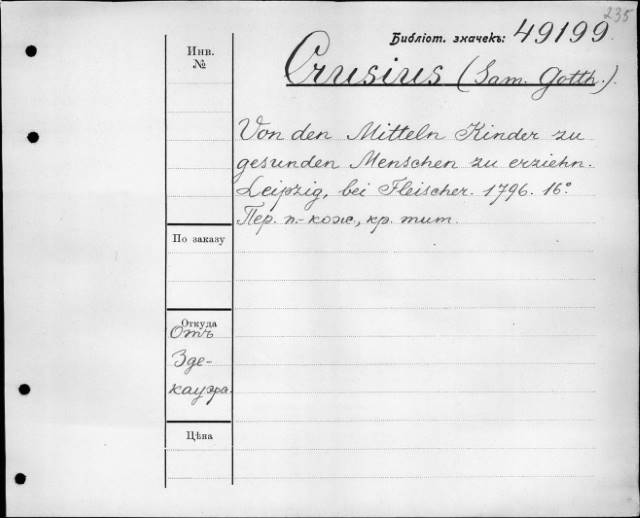 235
Библіот. значекъ: 49199.
Инв.
№
Crusius (Sam. Gotth.).
Von den Mitteln Kinder zu
gesunden Menschen zu erziehn.
Leipzig, bei Fleischer. 1796. 16°.
Пер. п.-кож., кр. тит.
По заказу
Откуда
Отъ
Зде-
кауэра.
Цѣна